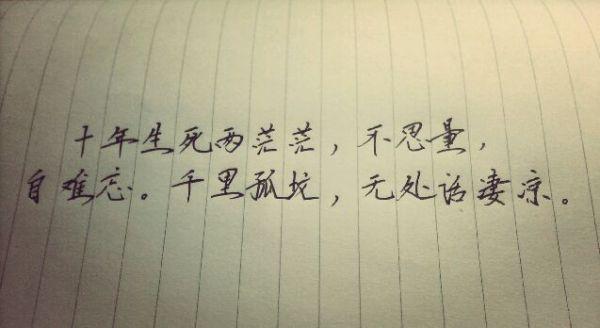 十年生死两茫茫，不思量，
自难忘。千里孤坟，无处话凄凉。